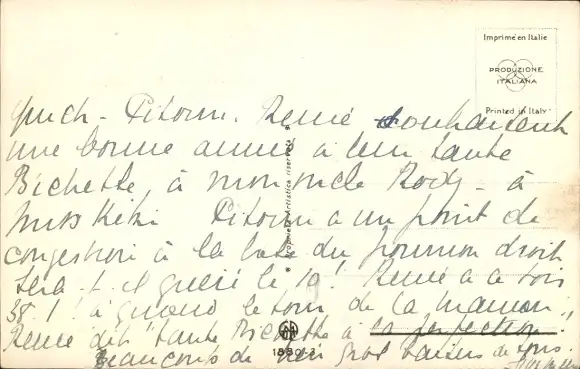 Imprimé en Italie
PRODUZIONE
ITALIANA
Printed in Italy
Pitoun. Renée souhaitent
une bonne année à leur tante
Bichette, à mon oncle Rody - à
Miss Kiki Pitoun a un point de
congestion à la base du poumon droit
sera-t-il guéri le 10! Renée a ce soir
38°! à quand le tour de la maman!
Renée dit "tante Bichette à la perfection!
Beaucoup de gros baisers de tous.
Proprietà Artistica riservata
1880-2